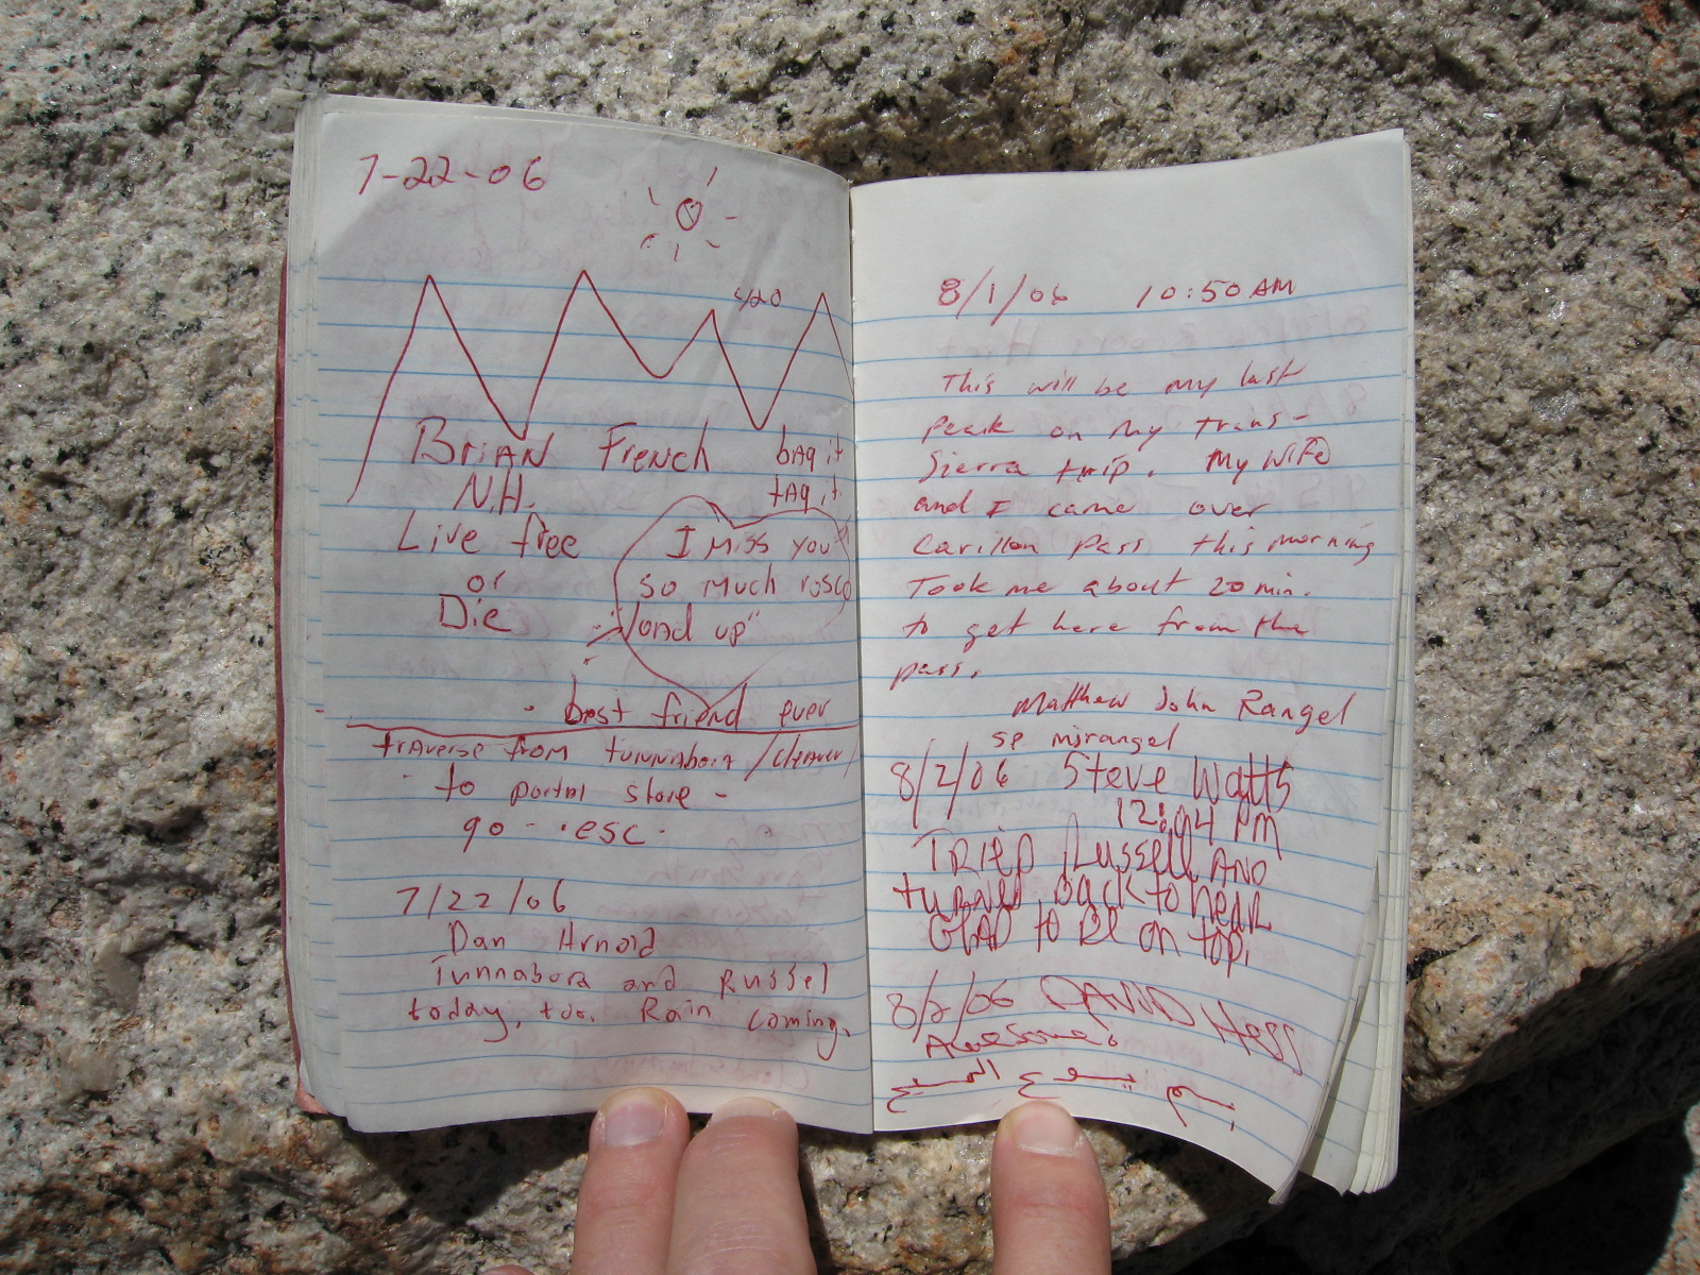 7-22-06
Brian French
bag it
tag it
N.H.
Live free
or
Die
I miss you
so much rosco
"lond up"
best friend ever
traverse from tunnabora / cleaver
to portal store -
go - esc.
7/22/06
Dan Arnold
Tunnabora and Russel
today, too. Rain coming.
8/1/06 10:50 AM
This will be my last
peak on my trans-
Sierra trip. My wife
and I came over
Carillon Pass this morning
Took me about 20 min.
to get here from the
pass.
Matthew John Rangel
sp mjrangel
8/2/06 Steve Watts
12:04 PM
TRIED Russell AND
turned back to hear
GLAD to BE on top.
8/2/06 DAVID Hess
Awesome.
بسم يسوع المسيح